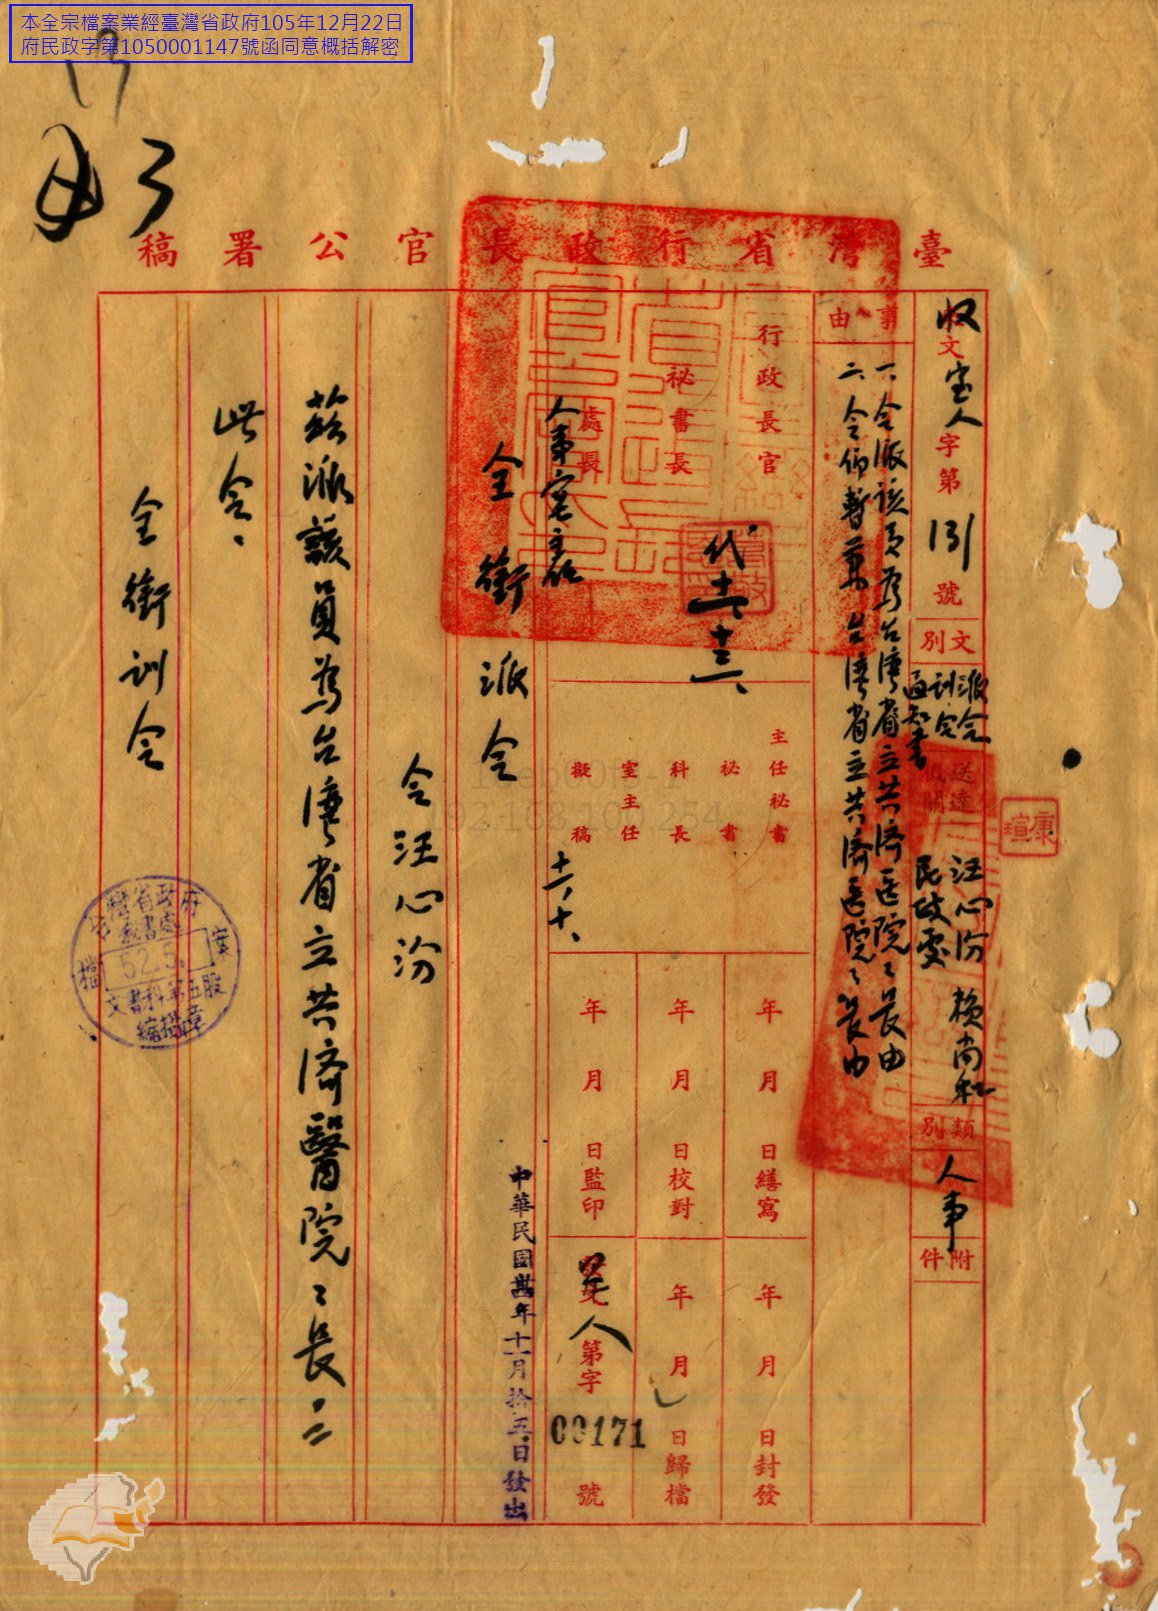 本全宗檔案業經臺灣省政府105年12月22日
府民政字第1050001147號函同意概括解密
臺灣省行政長官公署稿
收文 字第 號
文別
派令
訓令
通知書
送達機關
汪心汾 賴尚和
民政處
類別
人事
附件
事由
一、令派該員為台灣省立共濟医院〻長由
二、令仰暫兼台灣省立共濟医院〻長由
行政長官
秘書長
處長
人事室主任
代
主任秘書
秘書
科長
室主任
擬稿
年月日繕寫
年月日校對
年月日監印
年月日封發
年月日歸檔
人第字00171號
中華民國卅年十一月拾五日發出
全銜派令
令汪心汾
茲派該員為台灣省立共濟醫院〻長。
此令。
全銜訓令
康瑄
台灣省政府
秘書處
檔案
52.5.
文書科第五股
歸檔章
192.168.100.254